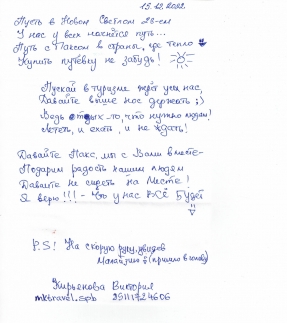 15.12.2022
Пусть в Новом Светлом 23-ем
У нас у всех начнётся путь...
Путь с Паксом в страны, где тепло
Купить путёвку не забудь!
Пускай в туризме ждёт успех нас,
Давайте выше нос держать ;)
Ведь отдых-то, что нужно людям!
Лететь, и ехать, и не ждать!
Давайте Пакс, мы с Вами вместе-
Подарим радость нашим людям
Давайте не сидеть на Месте!
Я верю!!! - Что у нас ВСЁ Будет
P.S! На скорую руку, увидев
(пришло в голову)
Кирьянова Виктория
mktravel.spb 29111724606